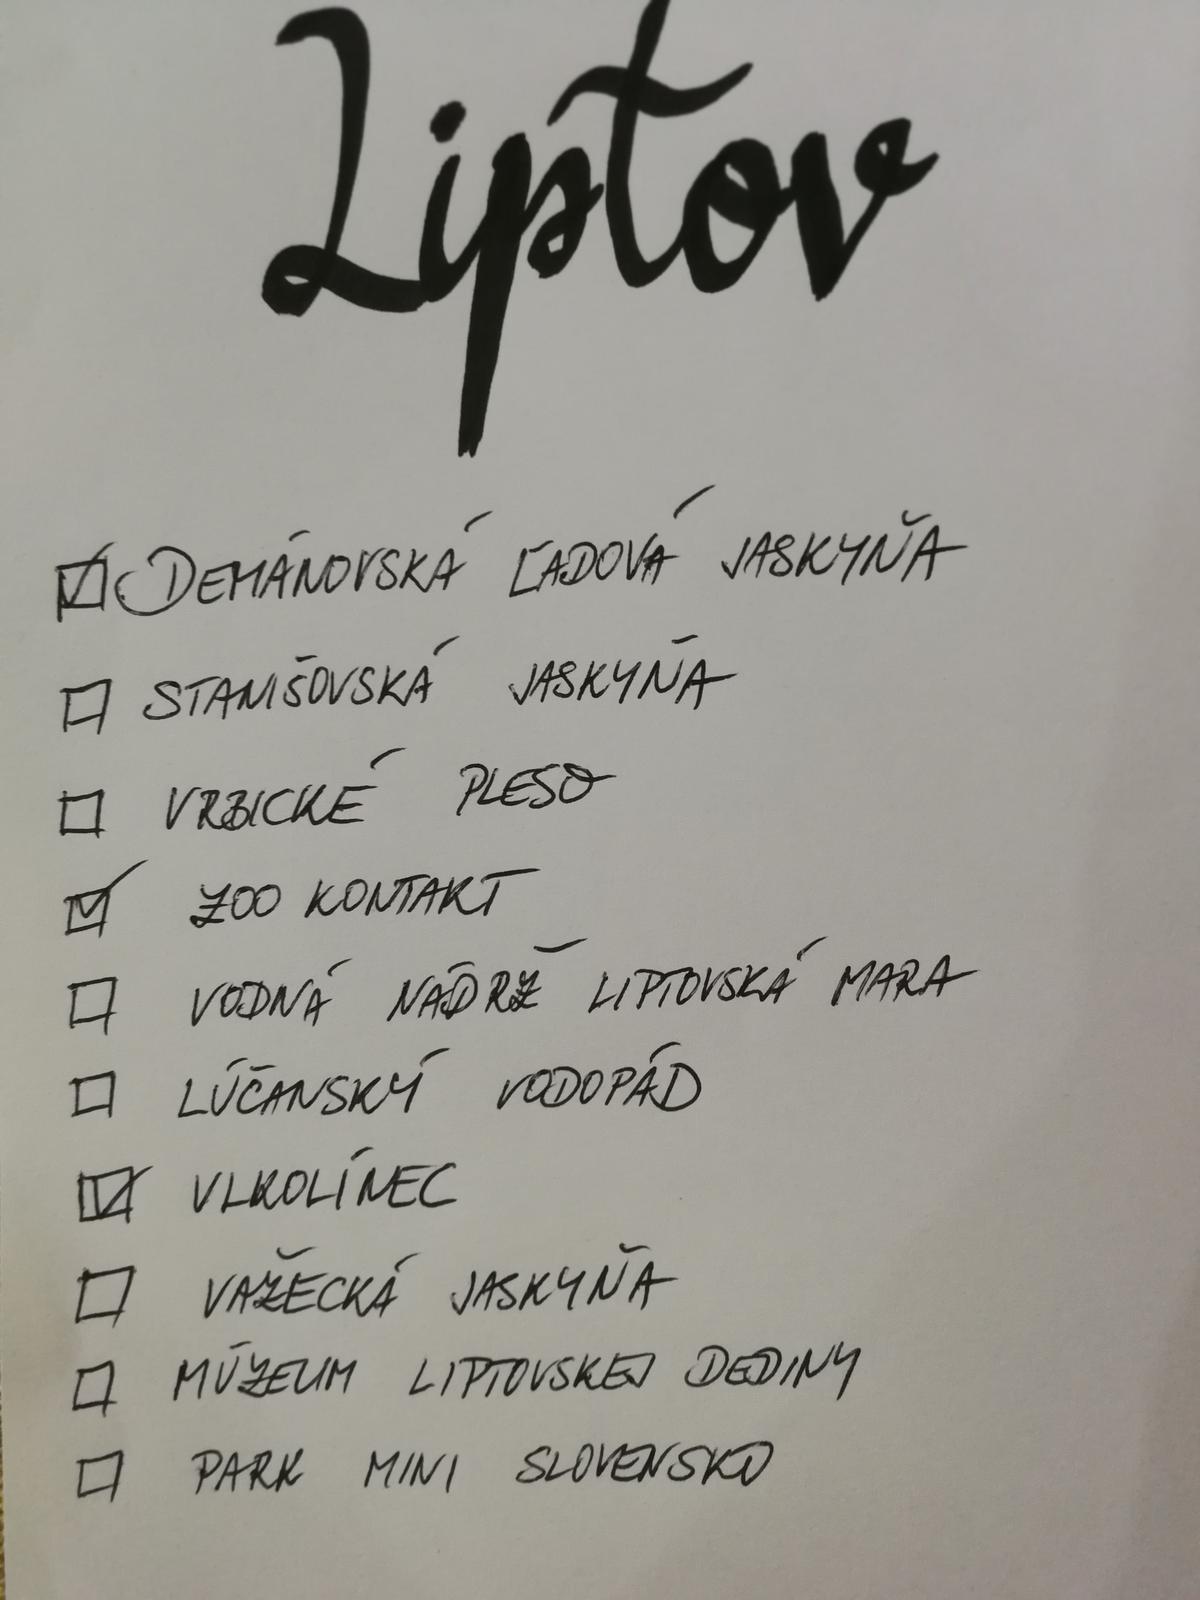 Liptov
☑ DEMÁNOVSKÁ ĽADOVÁ JASKYŇA
☐ STANIŠOVSKÁ JASKYŇA
☐ VRBICKÉ PLESO
☑ ZOO KONTAKT
☐ VODNÁ NÁDRŽ LIPTOVSKÁ MARA
☐ LÚČANSKÝ VODOPÁD
☑ VLKOLÍNEC
☐ VAŽECKÁ JASKYŇA
☐ MÚZEUM LIPTOVSKEJ DEDINY
☐ PARK MINI SLOVENSKO